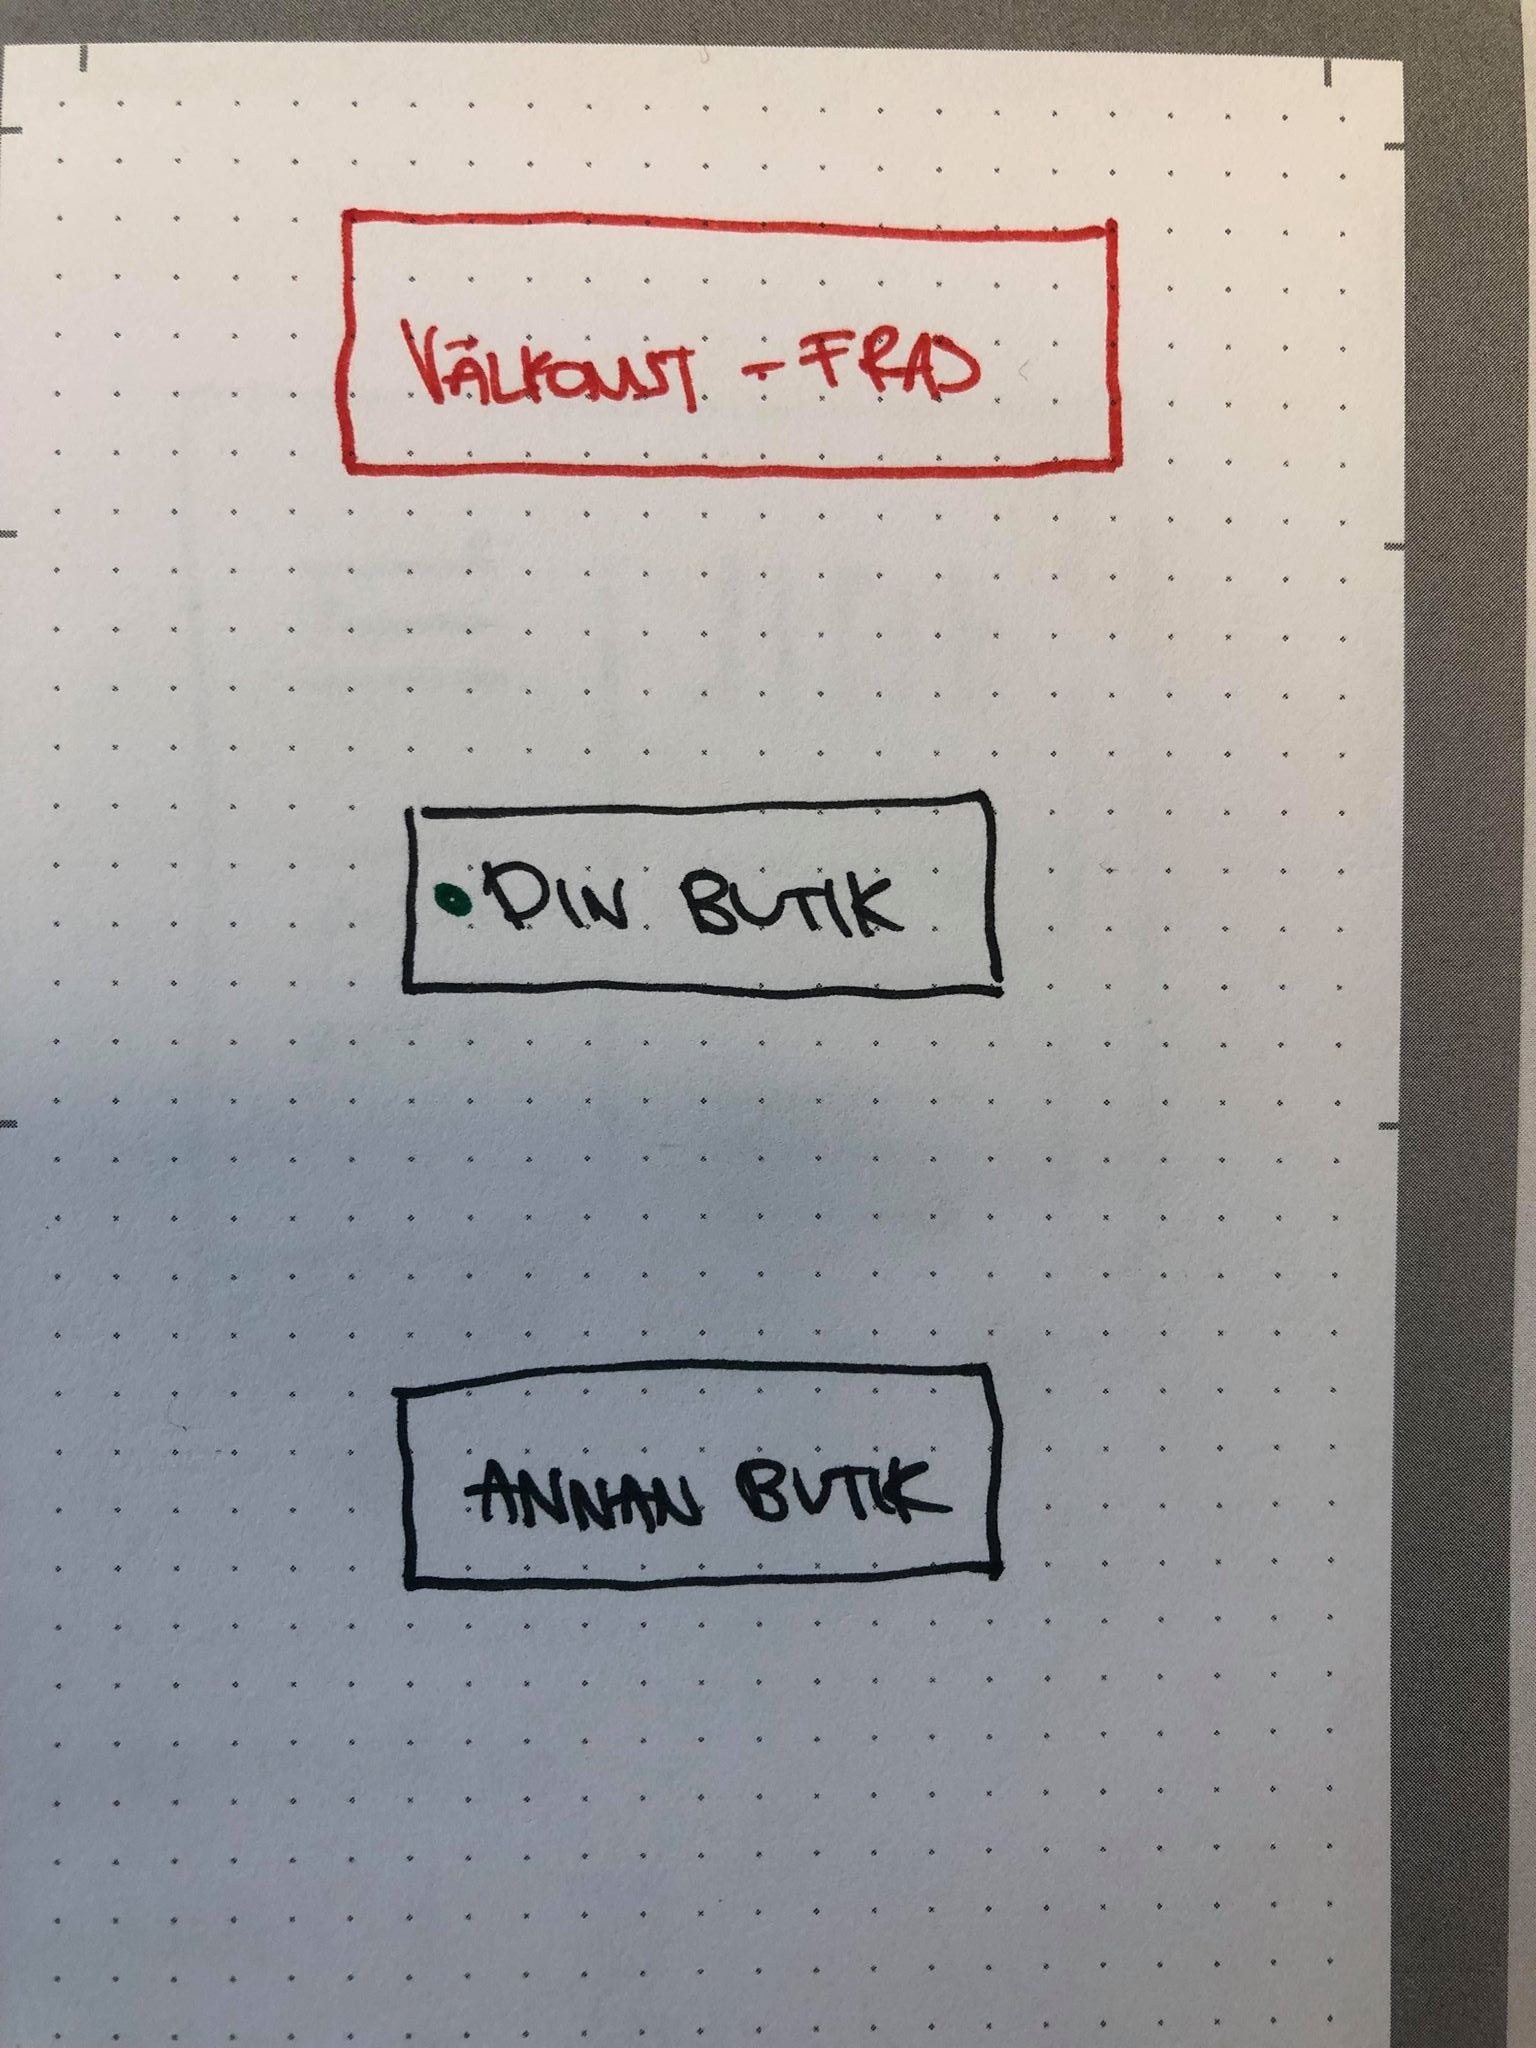 VÄLKOMST - FRAS
DIN BUTIK
ANNAN BUTIK